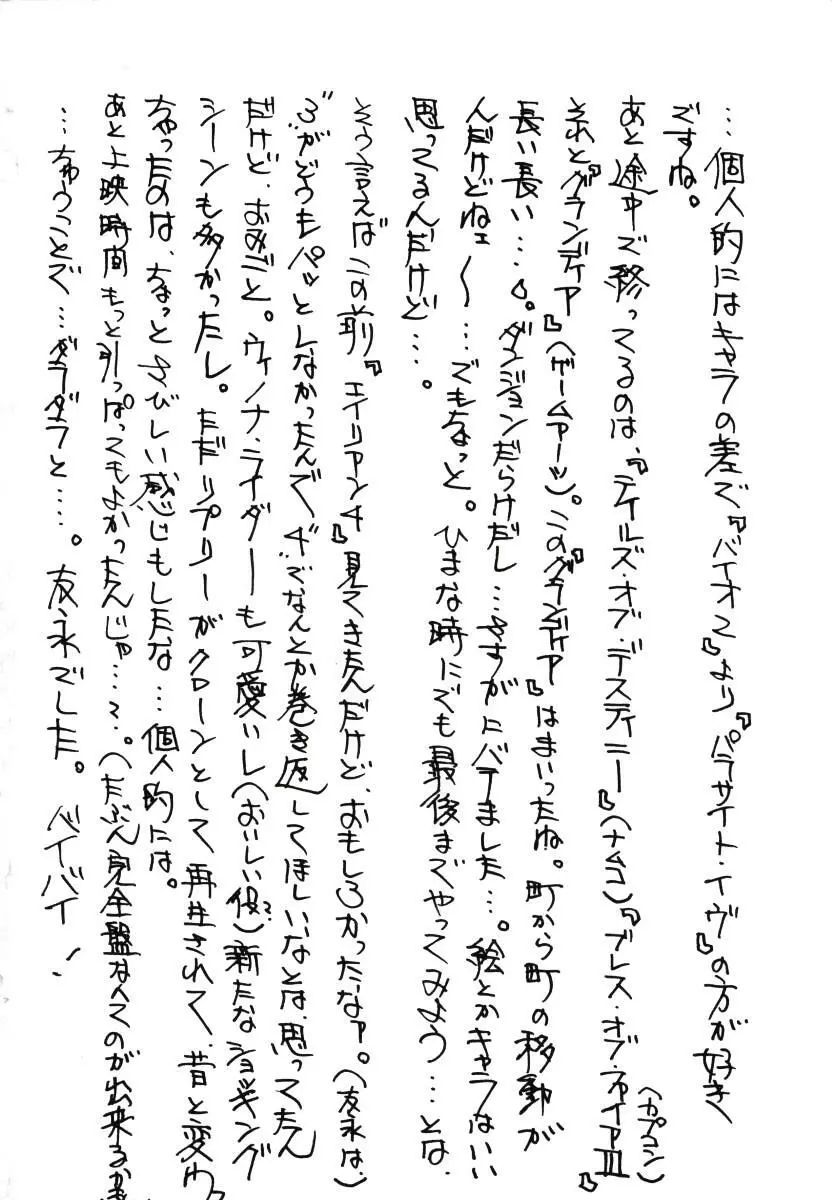 …個人的にはキャラの差で『バイオ2』より『パラサイト・イヴ』の方が好き
ですね。
あと途中で終ってるのは、『テイルズ・オブ・デスティニー』(ナムコ)『ブレス・オブ・ファイアⅢ』(カプコン)
それと『グランディア』(ゲームアーツ)。この『グランディア』はまいったね。町から町の移動が
長い長い…。ダンジョンだらけだし…さすがにバテました…。絵とかキャラないい
んだけどねェ〜…でもちょっと。ひまな時にでも最後までやってみよう…とは、
思ってるんだけど…。
そう言えばこの前『エイリアン4』見てきたんだけど、おもしろかったなァ。(友永は、)
"3"がどうもパッとしなかったんで、"4"でなんとか巻き返してほしいなとは、思ってたん
だけど、おみごと。ウィノナ・ライダーも可愛いし(おいしい役?)新たなショッキング
シーンも多かったし。ただリプリーがクローンとして再生されて、昔と変わっ
ちゃったのは、ちょっとさびしい感じもしたな…個人的には。
あと上映時間もっと引っぱってもよかったんじゃ…?。(たぶん完全盤なんてのが出来るか
…ちゅうことで…ダラダラと…。友永でした。バイバイ!